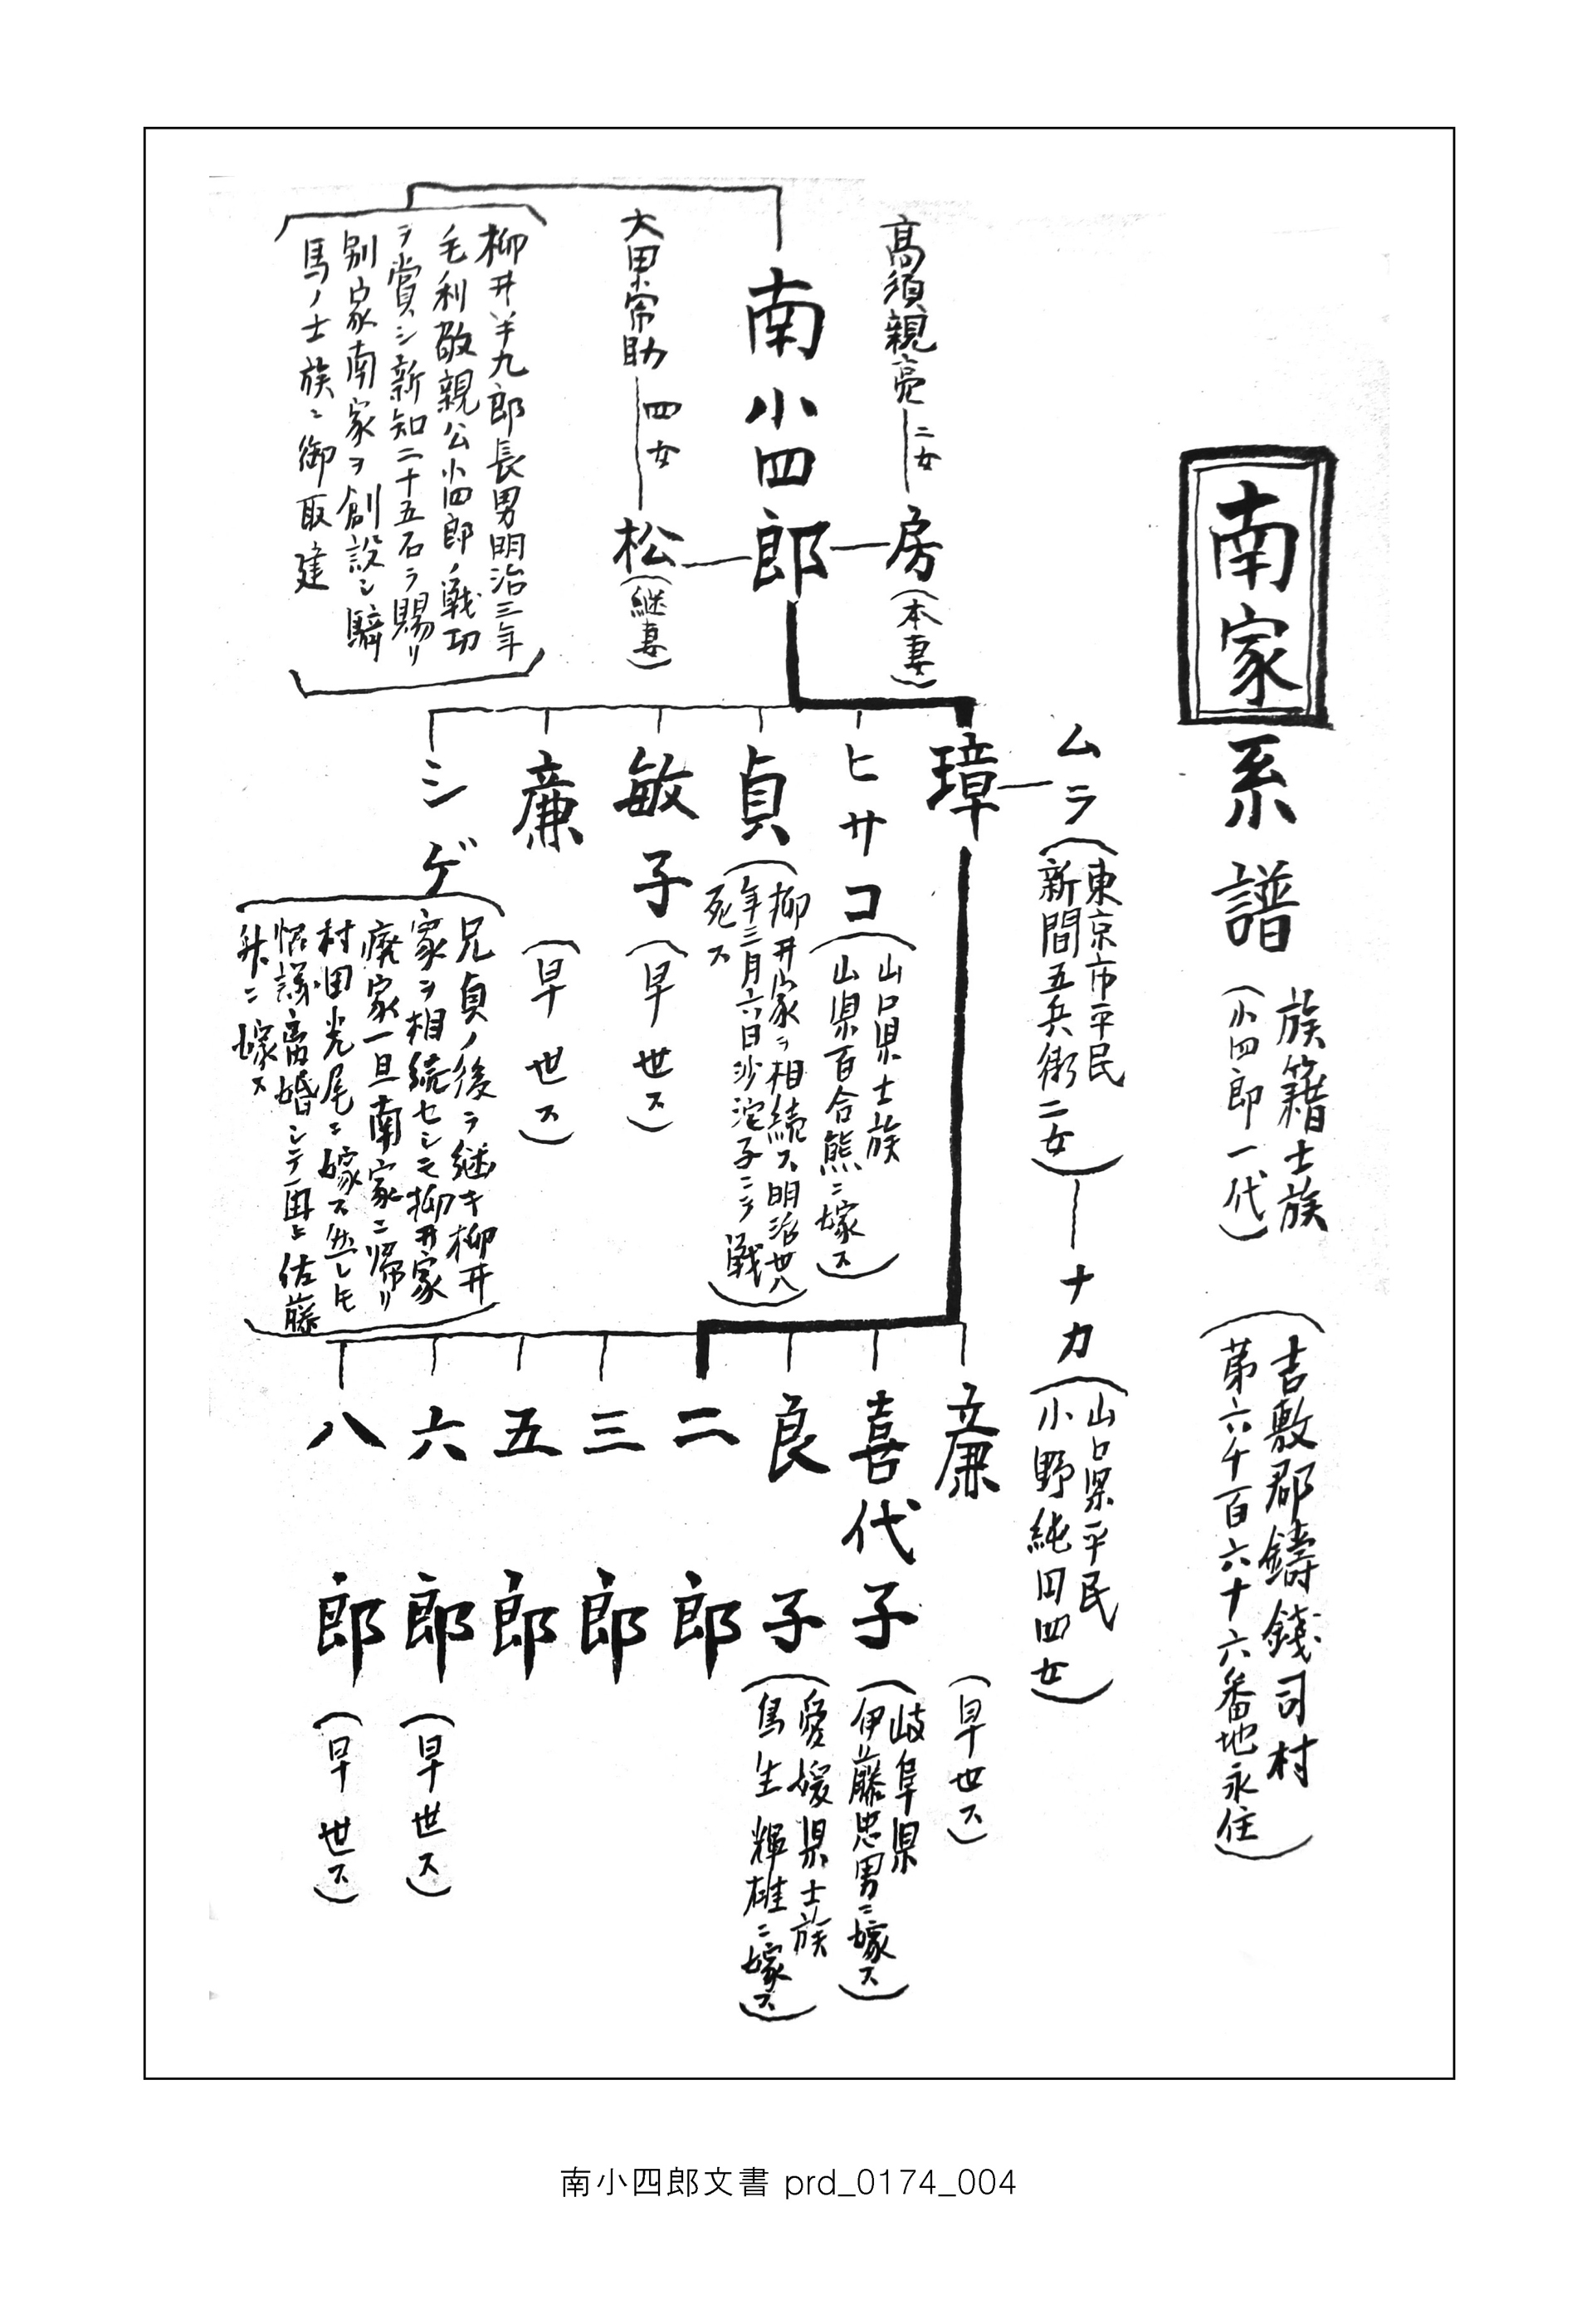 南家系譜
族籍士族
(小四郎一代)
(吉敷郡鋳銭司村
第六千百六十六番地永住)
高須親亮
二女
房(本妻)
南小四郎
大甲常助
四女
松(継妻)
柳井半九郎長男明治三年
毛利敬親公小四郎ノ戦功
ヲ賞シ新知二十五石ヲ賜リ
別家南家ヲ創設シ騎
馬ノ士族ニ御取建
ムラ
(東京市平民
新間五兵衛二女)
ナカ
(山口県平民
小野純田四女)
璋
ヒサコ
(山口県士族
山県百合熊ニ嫁ス)
貞
(柳井家ヲ相続ス明治卅八
年三月六日沙沱子ニテ戦
死ス)
敏子
(早世ス)
廉
(早世ス)
シゲ
兄貞ノ後ヲ継キ柳井
家ヲ相続セシモ柳井家
廃家一旦南家ニ帰リ
村田光尾ニ嫁ス然レトモ
協議離婚シテ再ヒ佐藤
升ニ嫁ス
廉
(早世ス)
喜代子
(岐阜県
伊藤忠男ニ嫁ス)
良子
(愛媛県士族
鳥生輝雄ニ嫁ス)
二郎
三郎
五郎
六郎
(早世ス)
八郎
(早世ス)
南小四郎文書 prd_0174_004